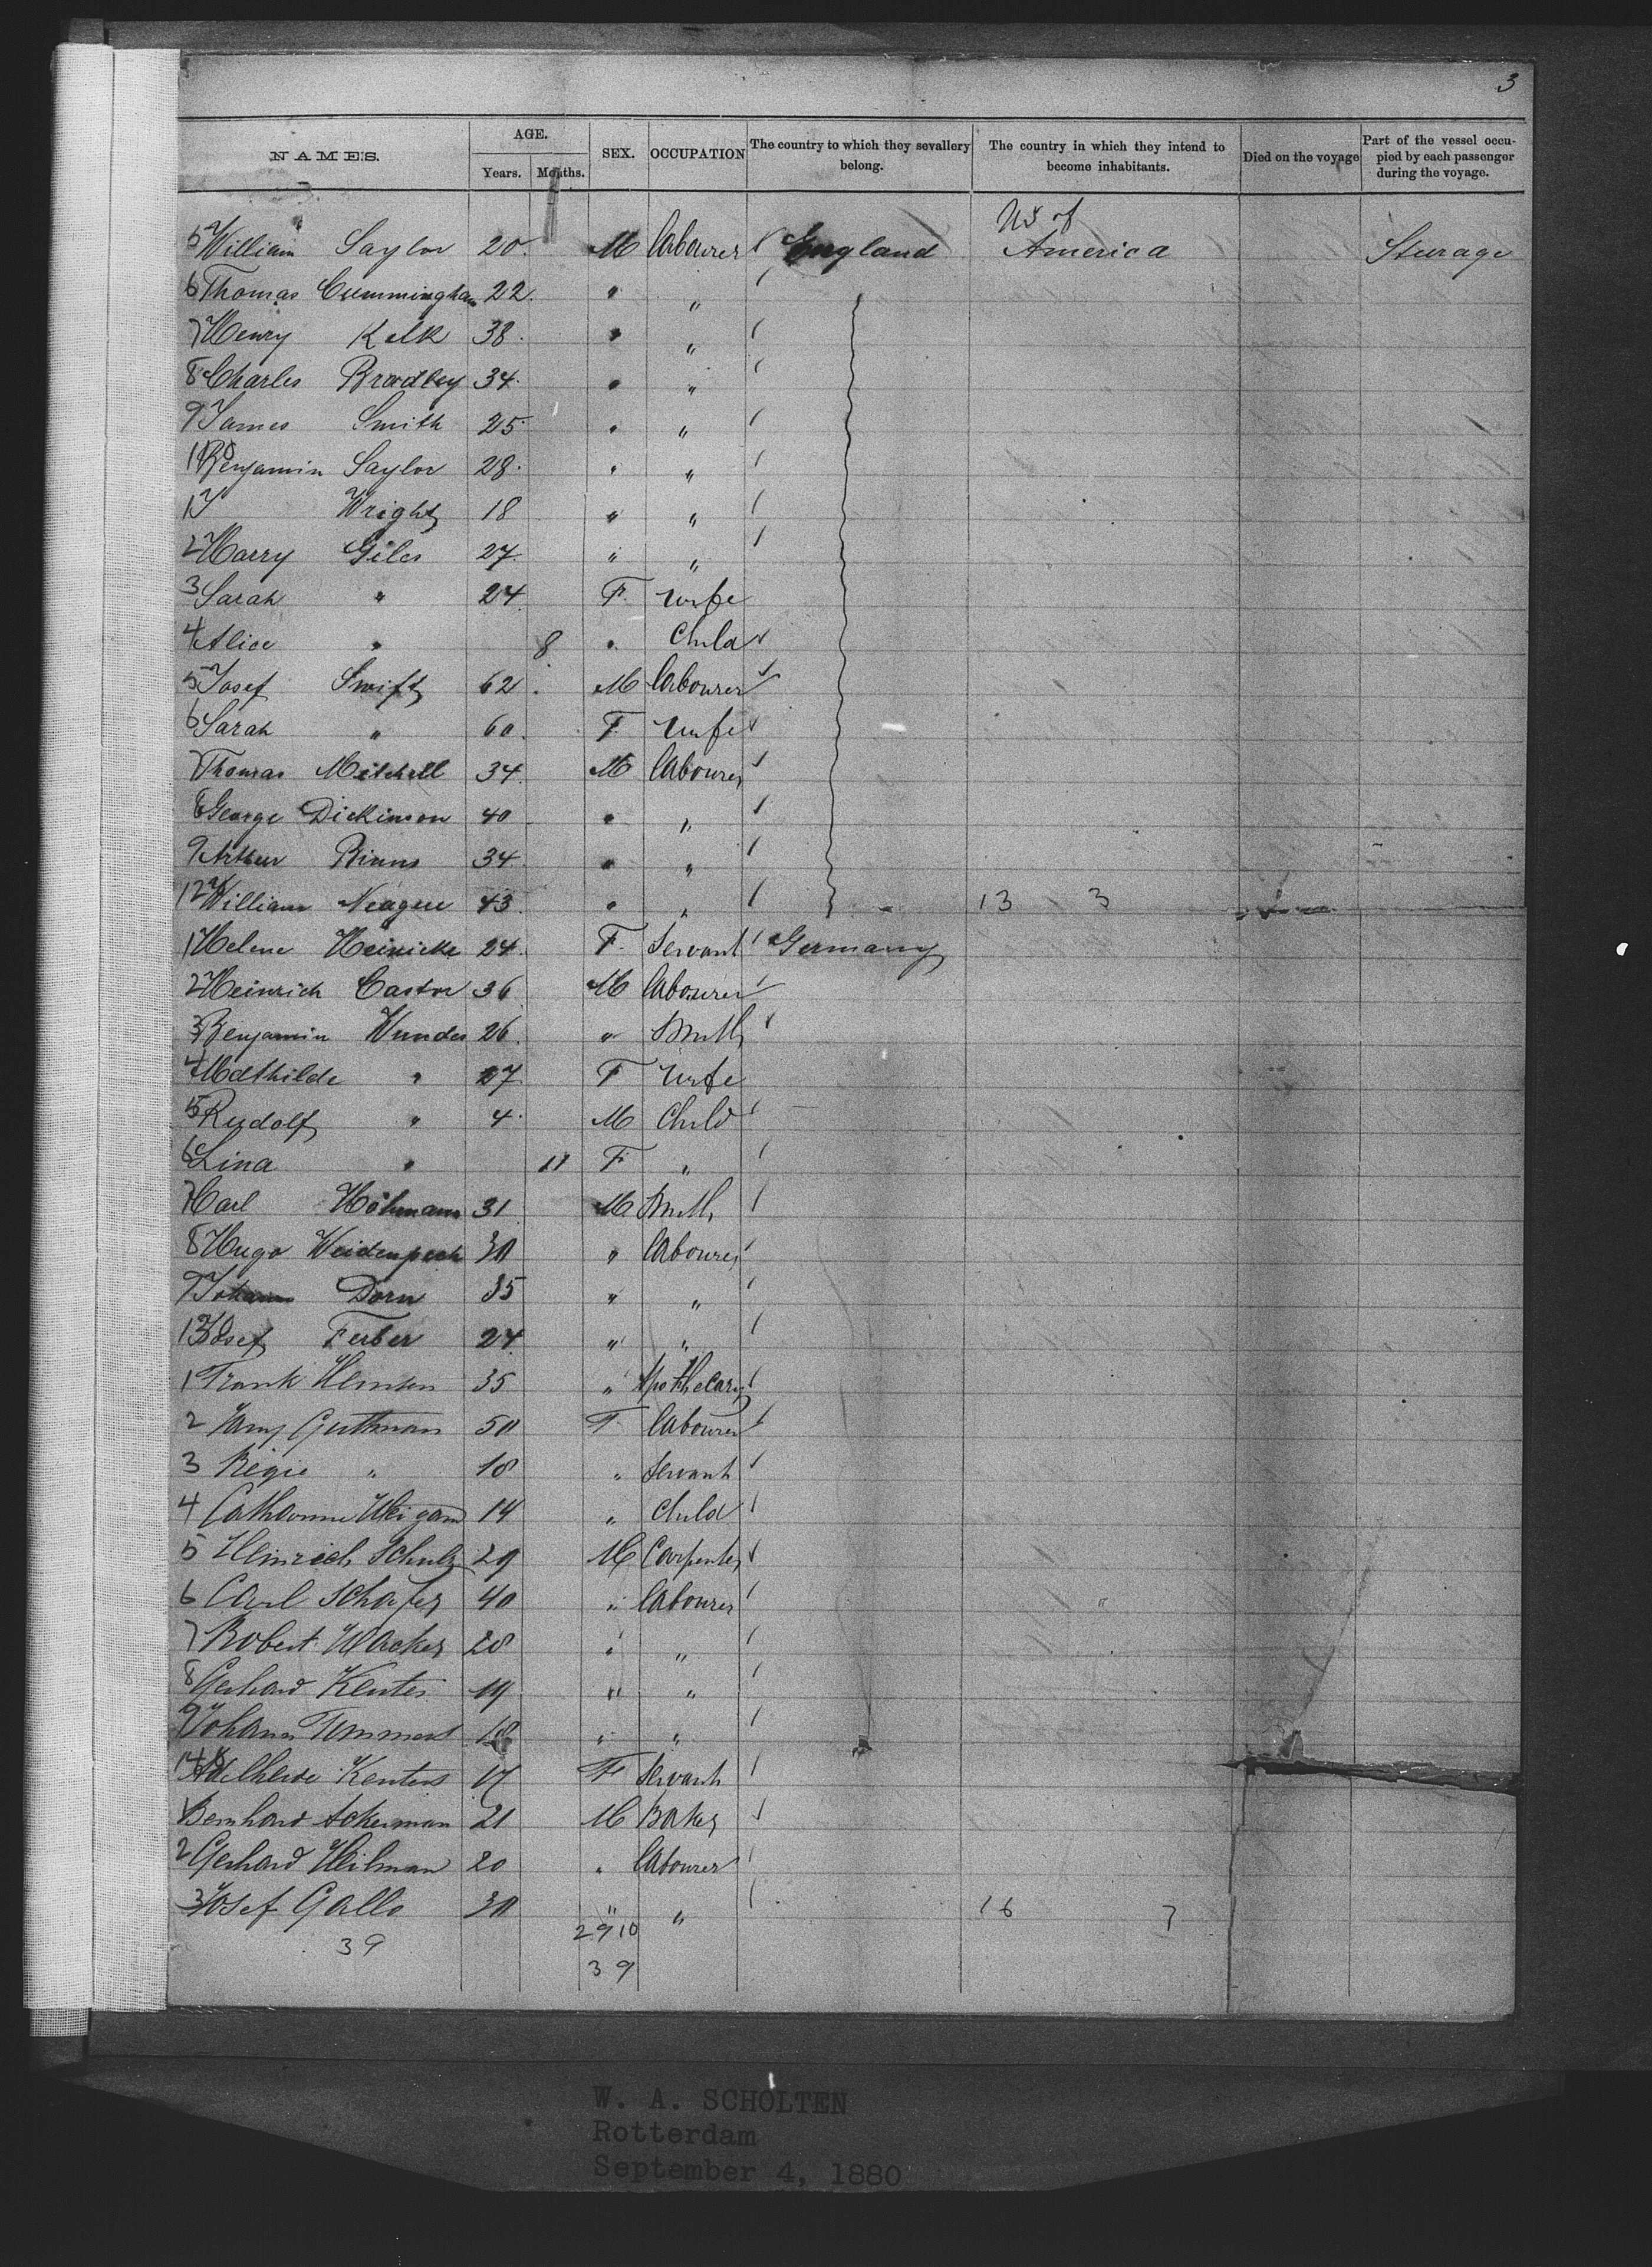 3
NAMES. AGE. Years. Months. SEX. OCCUPATION The country to which they sevallery belong. The country in which they intend to become inhabitants. Died on the voyage Part of the vessel occupied by each passenger during the voyage.
US of
5 William Saylor 20. M Labourer England America Sturage
6 Thomas Cummingham 22. " "
7 Henry Kelk 38. " "
8 Charles Bradley 34. " "
9 James Smith 25. " "
110 Benjamin Saylor 28. " "
1 J Wright 18 " "
2 Harry Giles 27. " "
3 Sarah " 24. F. Wife
4 Alice " 8 " Child
5 Josef Swift 62. M Labourer
6 Sarah " 60. F Wife
7 Thomas Mitchell 34. M Labourer
8 George Dickinson 40 " "
9 Arthur Binns 34 " "
12 William 43. " " 13 3
1 Helene Heinicke 24. F. Servant Germany
2 Heinrich Castor 36 M Labourer
3 Benjamin Wunder 26. " Smith
4 Mathilde " 27 F Wife
5 Rudolf " 4. M Child
6 Lina " 11 F "
7 Carl Höhmann 31 M Smith
8 Hugo 30 " Labourer
9 Johann Dorn 35 " "
13 Josef Ferber 24. " "
1 Frank 35 " Apothecary
2 Guttman 50 F Labourer
3 Regie " 18 " Servant
4 14 " Child
5 Heinrich Schulz 29 M Carpenter
6 Carl Schafer 40 " Labourer "
7 Robert Wacker 28 " "
8 Gerhard Kenter 19 " "
9 Johann 18 " "
140 Adelheide Kenters 17 F Servant
1 Bernhard Ackerman 21 M Baker
2 Gerhard Heilman 20 " Labourer
3 Josef Gallo 30 " " 16 7
39 29 10
39
W. A. SCHOLTEN
Rotterdam
September 4, 1880